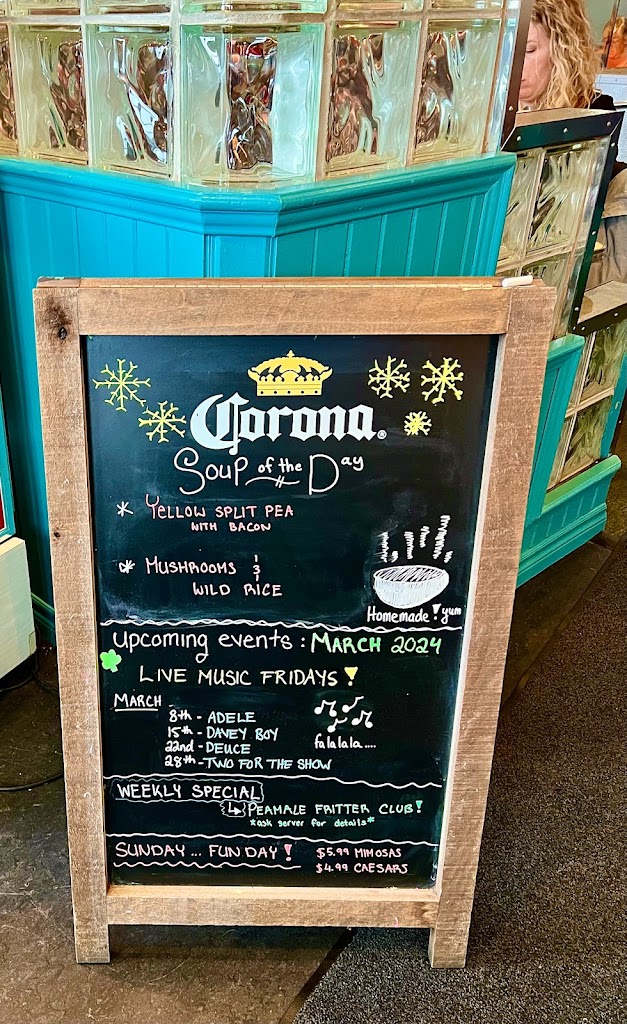 Corona®
Soup of the Day
* Yellow Split Pea
with Bacon
* Mushrooms &
Wild Rice
Homemade! yum
Upcoming events: March 2024
Live Music Fridays!
March
8th - Adele
15th - Davey Boy
22nd - Deuce
28th - Two for the Show
falalala....
Weekly Special
Peamale Fritter Club!
*ask server for details*
Sunday... Funday!
$5.99 Mimosas
$4.99 Caesars